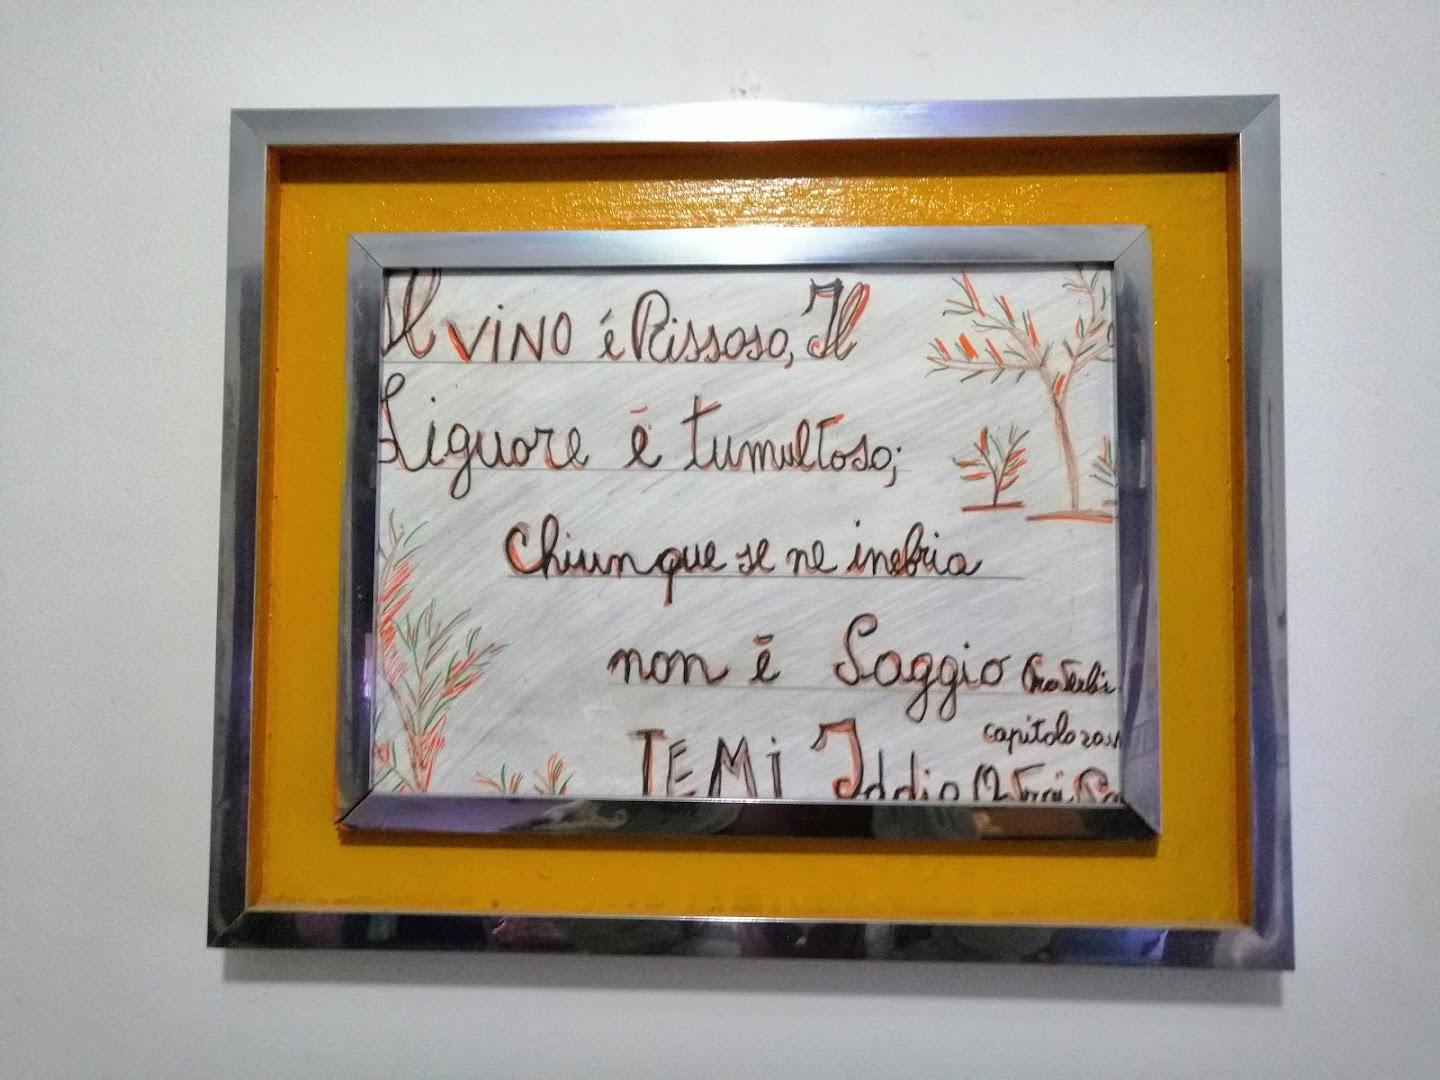 Il VINO é Rissoso, Il
Liguore é tumultoso;
Chiunque se ne inebria
non é Saggio Proverbi
capitolo
TEMI Iddio